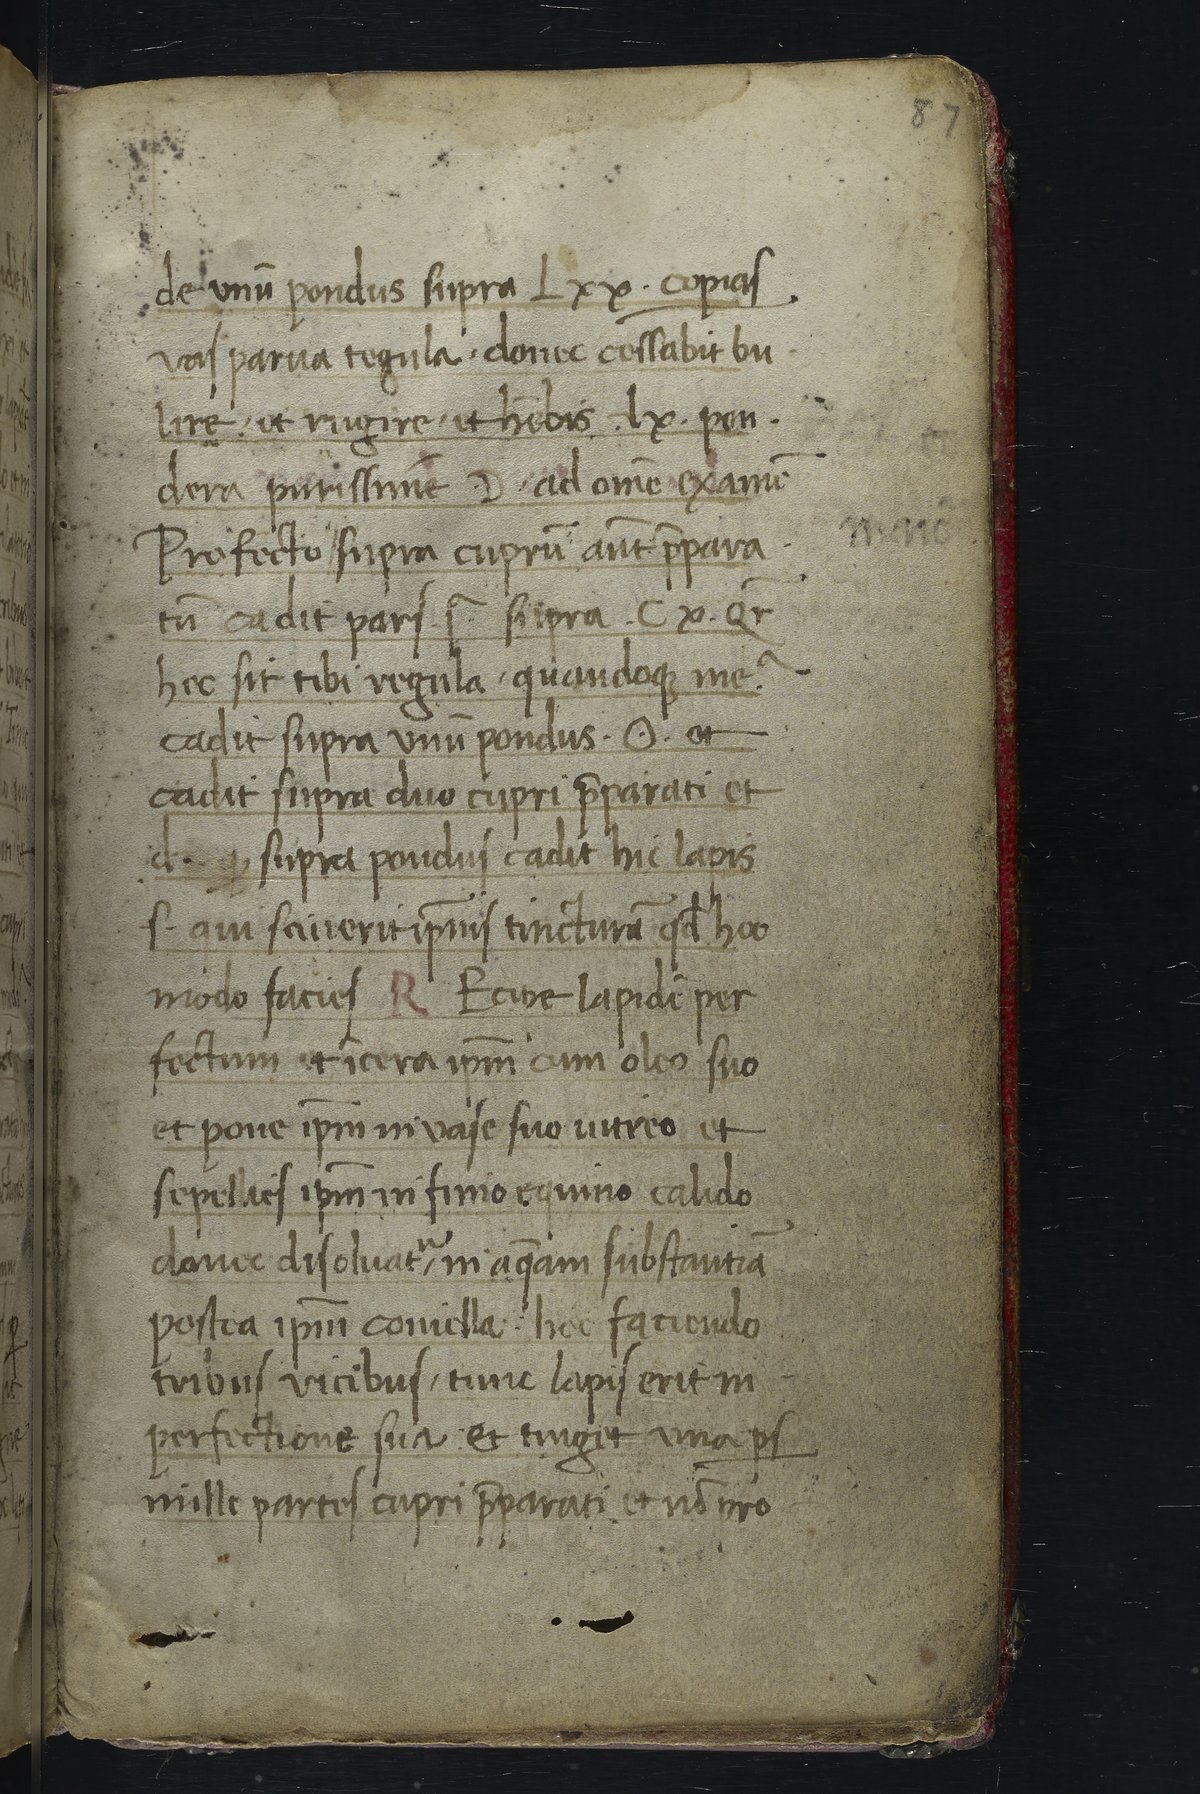 87
de unū pondus supra Lxx. copias
vas parva tegula. donec cessabit bu
lire. et rugire. et hēbis. lx. pon.
dera purissime ☽. ad omē examē
Profecto supra cuprū aūt p̄para
tū cadit pars. supra. Cx. Qr̄
hec sit tibi regula. quandoqꝫ me.
cadit supra unū pondus. ☉. et
cadit supra duo cupri p̄parati et
supra pondus cadit hic lapis
s. qui sciverit ip̄ius tincturā qd̄ hoc
modo facies R Ecipe lapidē per
fectum et īcera ip̄m cum oleo suo
et pone ip̄m in vase suo vitreo et
sepelies ip̄m in fimo equino calido
donec disoluatᵘʳ in aq̄am substantiā
postea ip̄m conuella. hec faciendo
tribus vicibus, tunc lapis erit in
perfectione sua. et tinget una ps
mille partes cupri p̄parati et nō pro